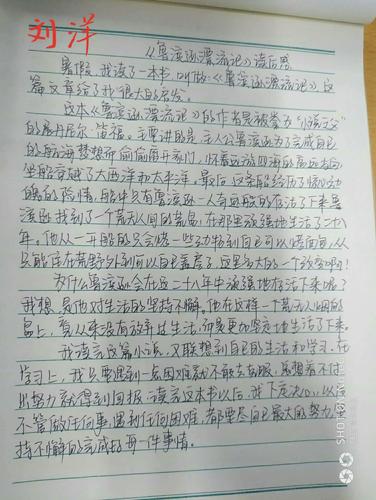 刘洋
《鲁滨逊漂流记》读后感
暑假,我读了一本书,叫做《鲁滨逊漂流记》,这
篇文章给了我很大的启发。
这本《鲁滨逊漂流记》的作者是被誉为"小说之父"
的丹尼尔·笛福。主要讲的是:主人公鲁滨逊为了完成自己
的航海梦想而偷偷离开家门,怀着远游四海的高远志向,
坐船穿越了大西洋和太平洋。最后,这条船经历了惊心动
魄的险情,船中只有鲁滨逊一人奇迹般的存活了下来。鲁
滨逊找到了一个荒无人烟的荒岛,在那里顽强地生活了二十八
年。他从一开始的只会
只能住在荒野外到可以自己盖房子,这是多大的一个改变啊!
为什么鲁滨逊会在这二十八年中顽强地存活下来呢?
我想,是他对生活的坚持不懈。他在这样一个荒无人烟的
岛上,看从来没有放弃过生活,而是更加坚定地生活了下来。
我读完这篇小说,又联想到自己的生活和学习。在
学习上,我只要遇到一点困难就不敢去克服,总想着不付
出努力就得到回报。读完这本书以后,我下定决心:以后
不管做任何事,遇到任何困难,都要尽自己最大的努力,坚
持不懈的完成好每一件事情。